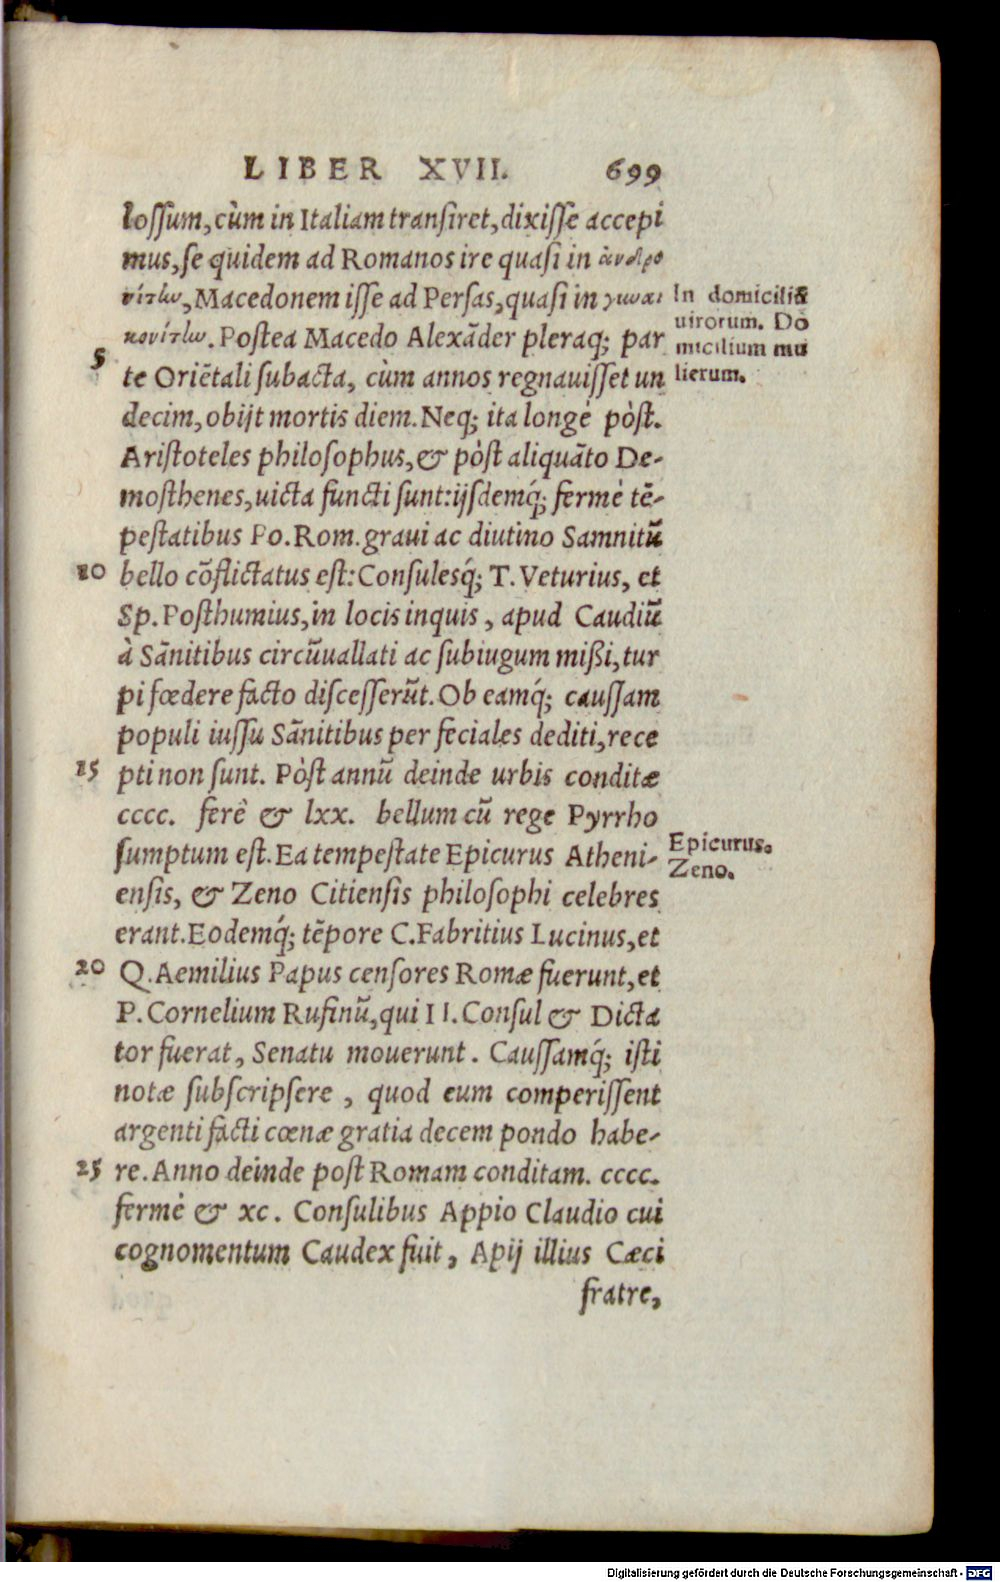 LIBER XVII. 699
lossum, cùm in Italiam transiret, dixisse accepi
mus, se quidem ad Romanos ire quasi in ἀνδρο
νίτlω, Macedonem isse ad Persas, quasi in γιωαι
κονίτlω. Postea Macedo Alexāder pleraq; par
5
te Oriētali subacta, cùm annos regnauisset un
decim, obijt mortis diem. Neq; ita longè pòst.
Aristoteles philosophus, & pòst aliquāto De-
mosthenes, uicta functi sunt: ijsdemq́; fermè tē-
pestatibus Po. Rom. graui ac diutino Samnitū
10 bello cōflictatus est: Consulesq́; T. Veturius, et
Sp. Posthumius, in locis inquis, apud Caudiū
à Sānitibus circūuallati ac subiugum mißi, tur
pi fœdere facto discesserūt. Ob eamq́; caussam
populi iussu Sānitibus per feciales dediti, rece
15 pti non sunt. Pòst annū deinde urbis conditæ
cccc. ferè & lxx. bellum cū rege Pyrrho
sumptum est. Ea tempestate Epicurus Atheni-
ensis, & Zeno Citiensis philosophi celebres
erant. Eodemq́; tēpore C. Fabritius Lucinus, et
20 Q. Aemilius Papus censores Romæ fuerunt, et
P. Cornelium Rufinū, qui II. Consul & Dicta
tor fuerat, Senatu mouerunt. Caussamq́; isti
notæ subscripsere, quod eum comperissent
argenti facti cœnæ gratia decem pondo habe-
25 re. Anno deinde post Romam conditam. cccc.
fermè & xc. Consulibus Appio Claudio cui
cognomentum Caudex fuit, Apij illius Cæci
fratre,
In domiciliū
uirorum. Do
micilium mu
lierum.
Epicurus.
Zeno.
Digitalisierung gefördert durch die Deutsche Forschungsgemeinschaft - DFG